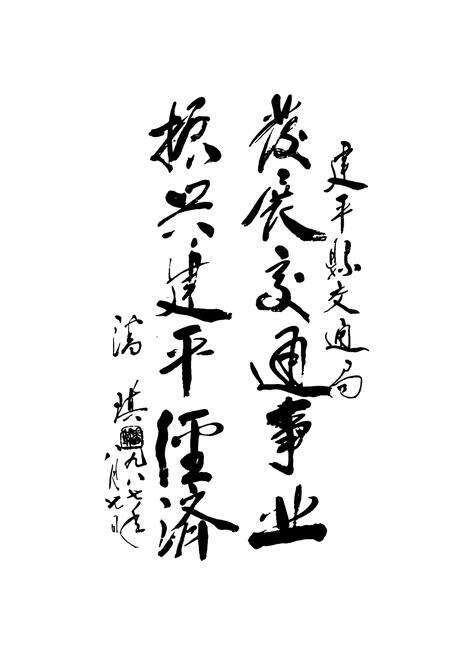 建平縣交通局
發展交通事业
振兴建平經濟
潘琪
一九八七年
八月七日